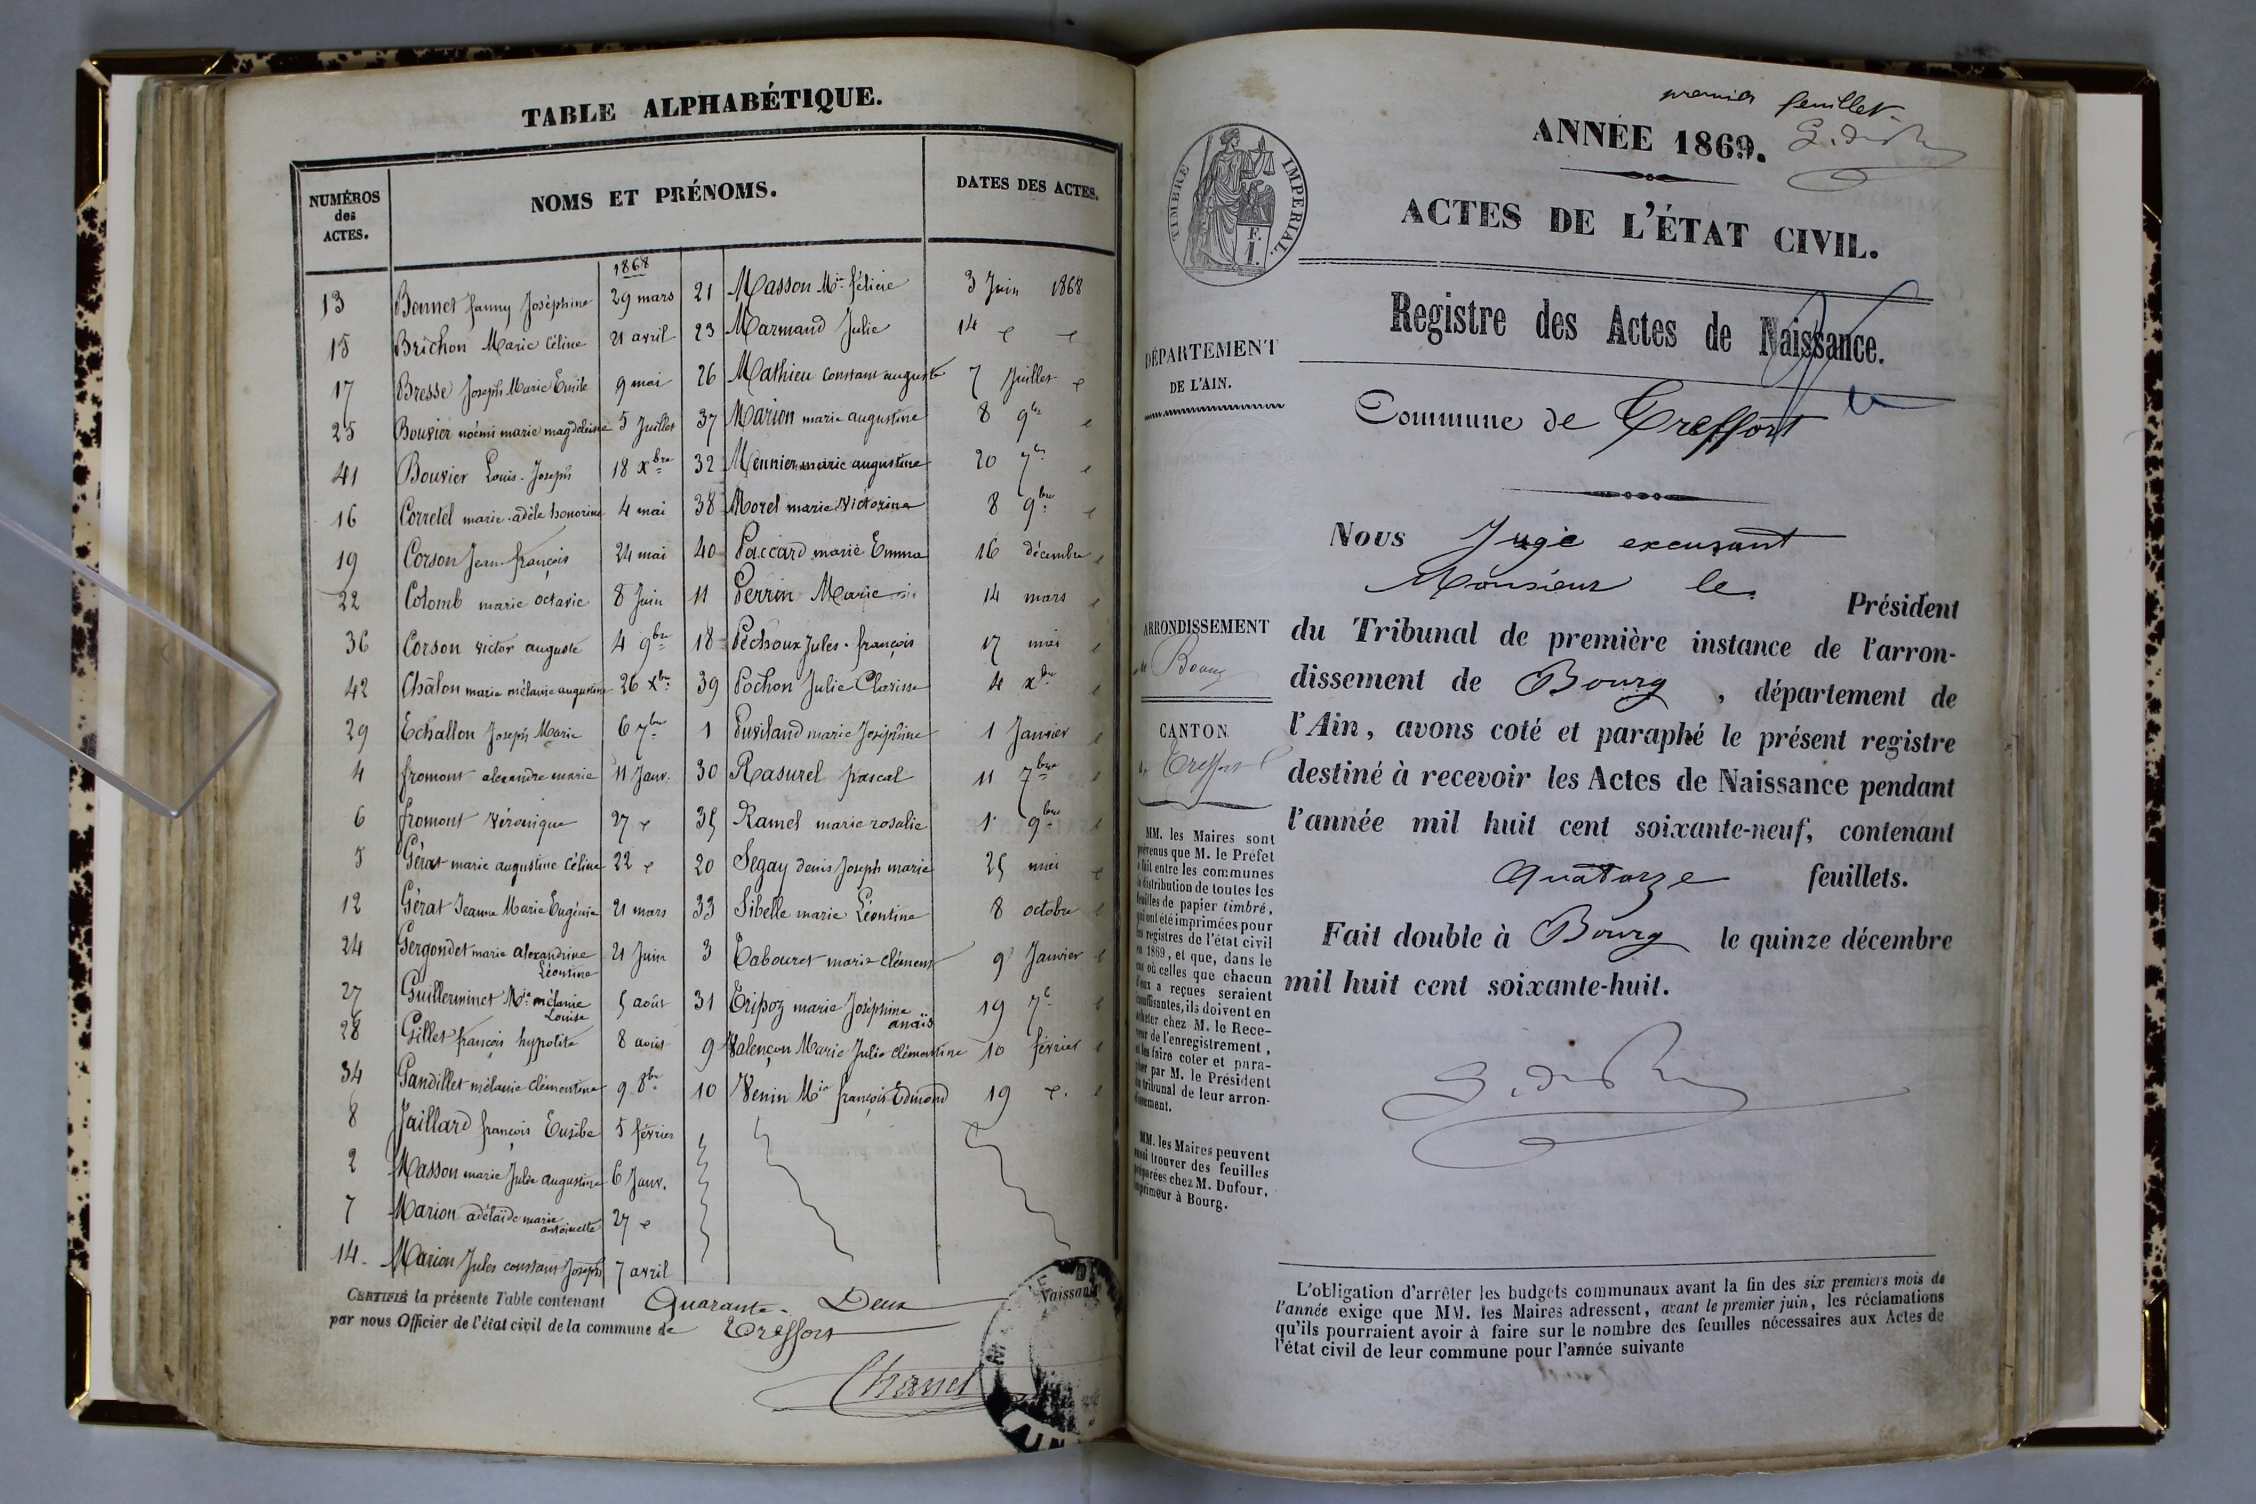 TABLE ALPHABÉTIQUE.
NUMÉROS des ACTES.
NOMS ET PRÉNOMS.
DATES DES ACTES.
1868
13 Bonnet fanny Joséphine 29 mars
15 Brichon Marie Céline 21 avril
17 Bresse Joseph Marie Emile 9 mai
25 Bouvier noémi marie magdeleine 5 Juillet
41 Bouvier Louis-Joseph 18 Xbre
16 Corretel marie-adèle honorine 4 mai
19 Corson Jean-françois 24 mai
22 Colomb marie octavie 8 Juin
36 Corson victor auguste 4 9bre
42 Châlon marie mélanie augustine 26 Xbre
29 Echallon Joseph Marie 6 7bre
4 fromont alexandre marie 11 Janv.
6 fromont Véronique 27 "
5 Gérat marie augustine Céline 22 "
12 Gérat Jeanne Marie Eugénie 21 mars
24 Gergondet marie alexandrine Léontine 21 Juin
27 Guillerminet Mie mélanie Louise 5 août
28 Gillet françois hypolite 8 août
34 Gandillet mélanie clémentine 9 8bre
8 Jaillard françois Eusèbe 5 février
2 Masson marie Julie augustine 6 Janv.
7 Marion adélaïde marie antoinette 27 "
14 Marion Jules constant Joseph 7 avril
21 Masson Mie félicie 3 Juin 1868
23 Marmand Julie 14 " "
26 Mathieu constant auguste 7 Juillet "
37 Marion marie augustine 8 9bre "
32 Mennier marie augustine 20 7bre "
38 Morel marie Victorine 8 9bre "
40 Paccard marie Emma 16 décembre "
11 Perrin Marie 14 mars "
18 Pechoux Jules-françois 17 mai "
39 Pochon Julie Clarisse 4 xbre "
1 Puviland marie Joséphine 1 Janvier "
30 Rasurel pascal 11 7bre "
35 Ramel marie rosalie 1er 9bre "
20 Segay denis Joseph marie 25 mai "
33 Sibelle marie Léontine 8 octobre "
3 Tabouret marie clément 9 Janvier "
31 Tripoz marie Joséphine anaïs 19 7bre "
9 Valençon Marie Julie clémentine 10 février "
10 Venin Mie françois Edmond 19 " "
CERTIFIÉ la présente Table contenant Quarante-Deux Naissances
par nous Officier de l'état civil de la commune de Treffort
Chanel
premier feuillet
ANNÉE 1869.
TIMBRE IMPÉRIAL.
F.
1.
ACTES DE L'ÉTAT CIVIL.
Registre des Actes de Naissance.
DÉPARTEMENT
DE L'AIN.
Commune de Treffort
Nous Juge excusant
Monsieur le Président
du Tribunal de première instance de l'arron-
dissement de Bourg, département de
l'Ain, avons coté et paraphé le présent registre
destiné à recevoir les Actes de Naissance pendant
l'année mil huit cent soixante-neuf, contenant
Quatorze feuillets.
Fait double à Bourg le quinze décembre
mil huit cent soixante-huit.
ARRONDISSEMENT
de Bourg
CANTON
de Treffort
MM. les Maires sont
prévenus que M. le Préfet
a fait entre les communes
la distribution de toutes les
feuilles de papier timbré,
qui ont été imprimées pour
les registres de l'état civil
en 1869, et que, dans le
cas où celles que chacun
d'eux a reçues seraient
insuffisantes, ils doivent en
acheter chez M. le Rece-
veur de l'enregistrement,
et les faire coter et para-
pher par M. le Président
du tribunal de leur arron-
dissement.
MM. les Maires peuvent
aussi trouver des feuilles
préparées chez M. Dufour,
imprimeur à Bourg.
L'obligation d'arrêter les budgets communaux avant la fin des six premiers mois de
l'année exige que MM. les Maires adressent, avant le premier juin, les réclamations
qu'ils pourraient avoir à faire sur le nombre des feuilles nécessaires aux Actes de
l'état civil de leur commune pour l'année suivante